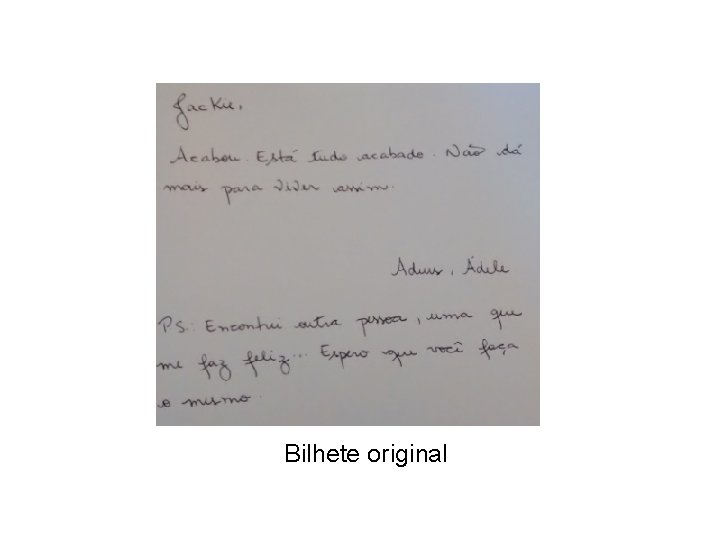 Jackie,
Acabou. Está tudo acabado. Não dá
mais para viver assim.
Adeus, Ádele
PS.: Encontrei outra pessoa, uma que
me faz feliz... Espero que você faça
o mesmo.
Bilhete original